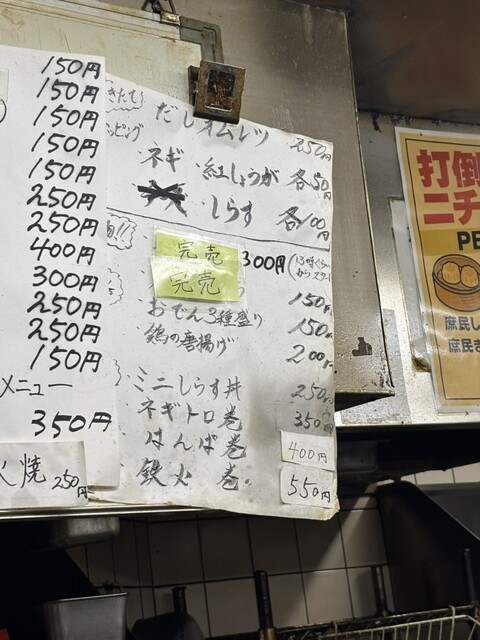 150円
150円
150円
150円
150円
250円
250円
400円
300円
250円
250円
150円
メニュー
350円
火焼 250円
きたて
だしオムレツ 250円
ッピング
ネギ 紅しょうが 各50円
しらす 各100円
完売 300円
完売 150円
おでん3種盛り 150円
鶏の唐揚げ 200円
ミニしらす丼 250円
ネギトロ巻 350円
はんぱ巻 400円
鉄火巻 550円
打倒
ニチ
PE
庶民し
庶民き